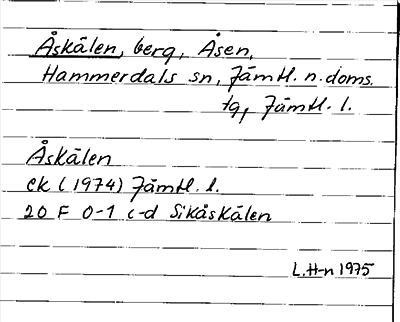 Åskälen, berg, Åsen,
Hammerdals sn, Jämtl. n. doms.
tg, Jämtl. l.
Åskälen
ek (1974) Jämtl. l.
20 F 0-1 c-d Sikåskälen
L.H-n 1975